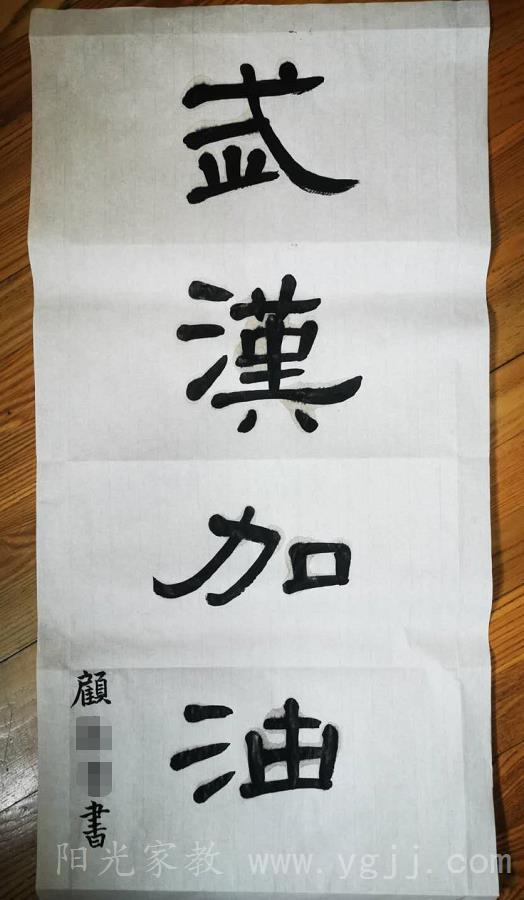 武漢加油
顧
書
阳光家教 www.ygjj.com